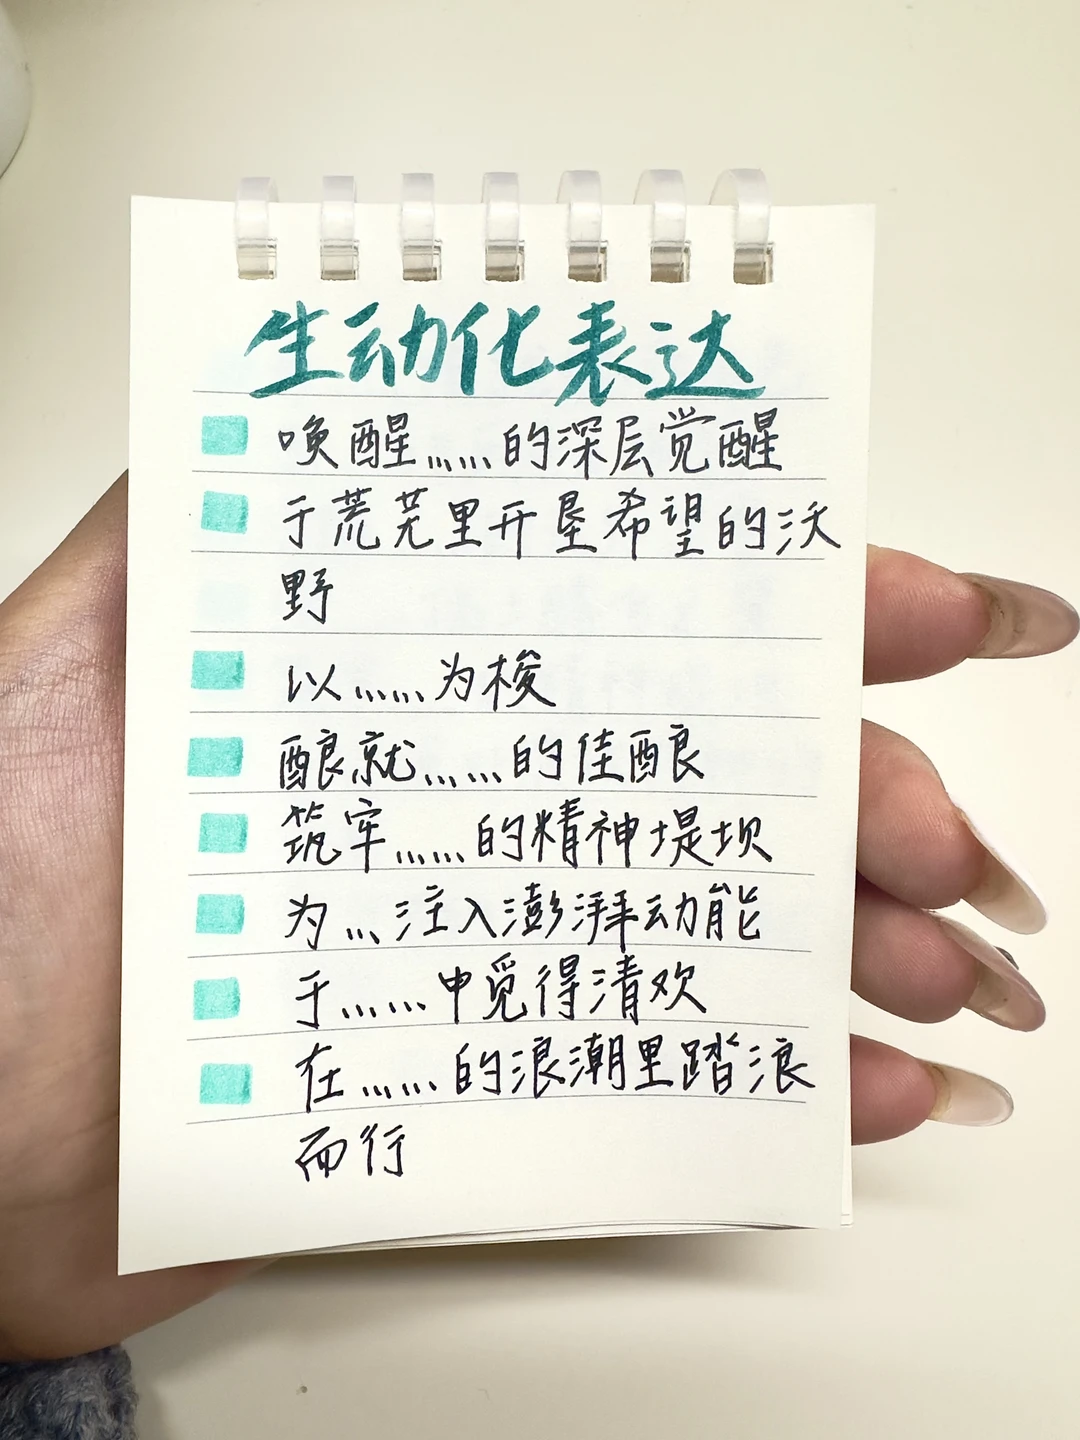 生动化表达
唤醒……的深层觉醒
于荒芜里开垦希望的沃
野
以……为梭
酿就……的佳酿
筑牢……的精神堤坝
为…注入澎湃动能
于……中觅得清欢
在……的浪潮里踏浪
而行